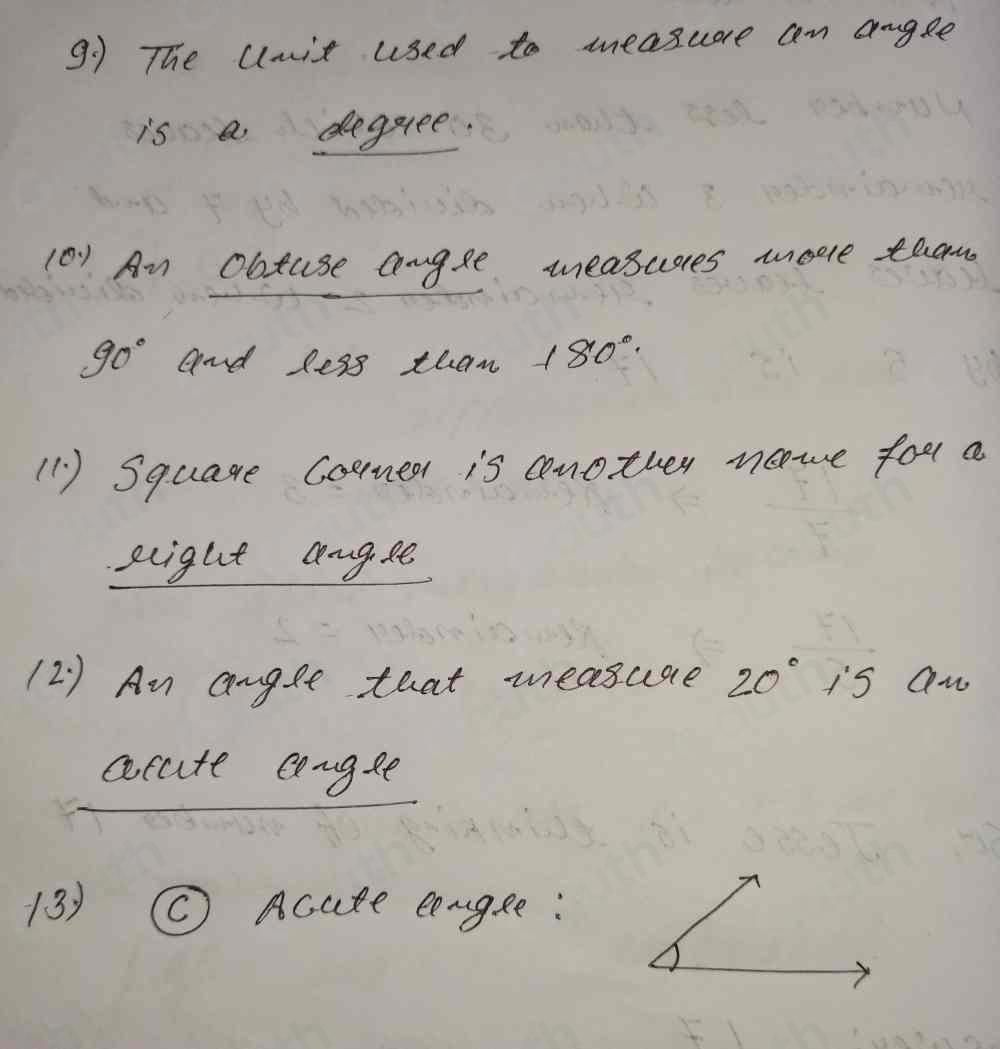 9.) The Unit used to measure an angle
is a degree.
10.) An Obtuse angle measures more than
90° and less than 180°.
11.) Square Corner is another name for a
right angle
12.) An angle that measure 20° is an
acute angle
13.) C Acute angle :